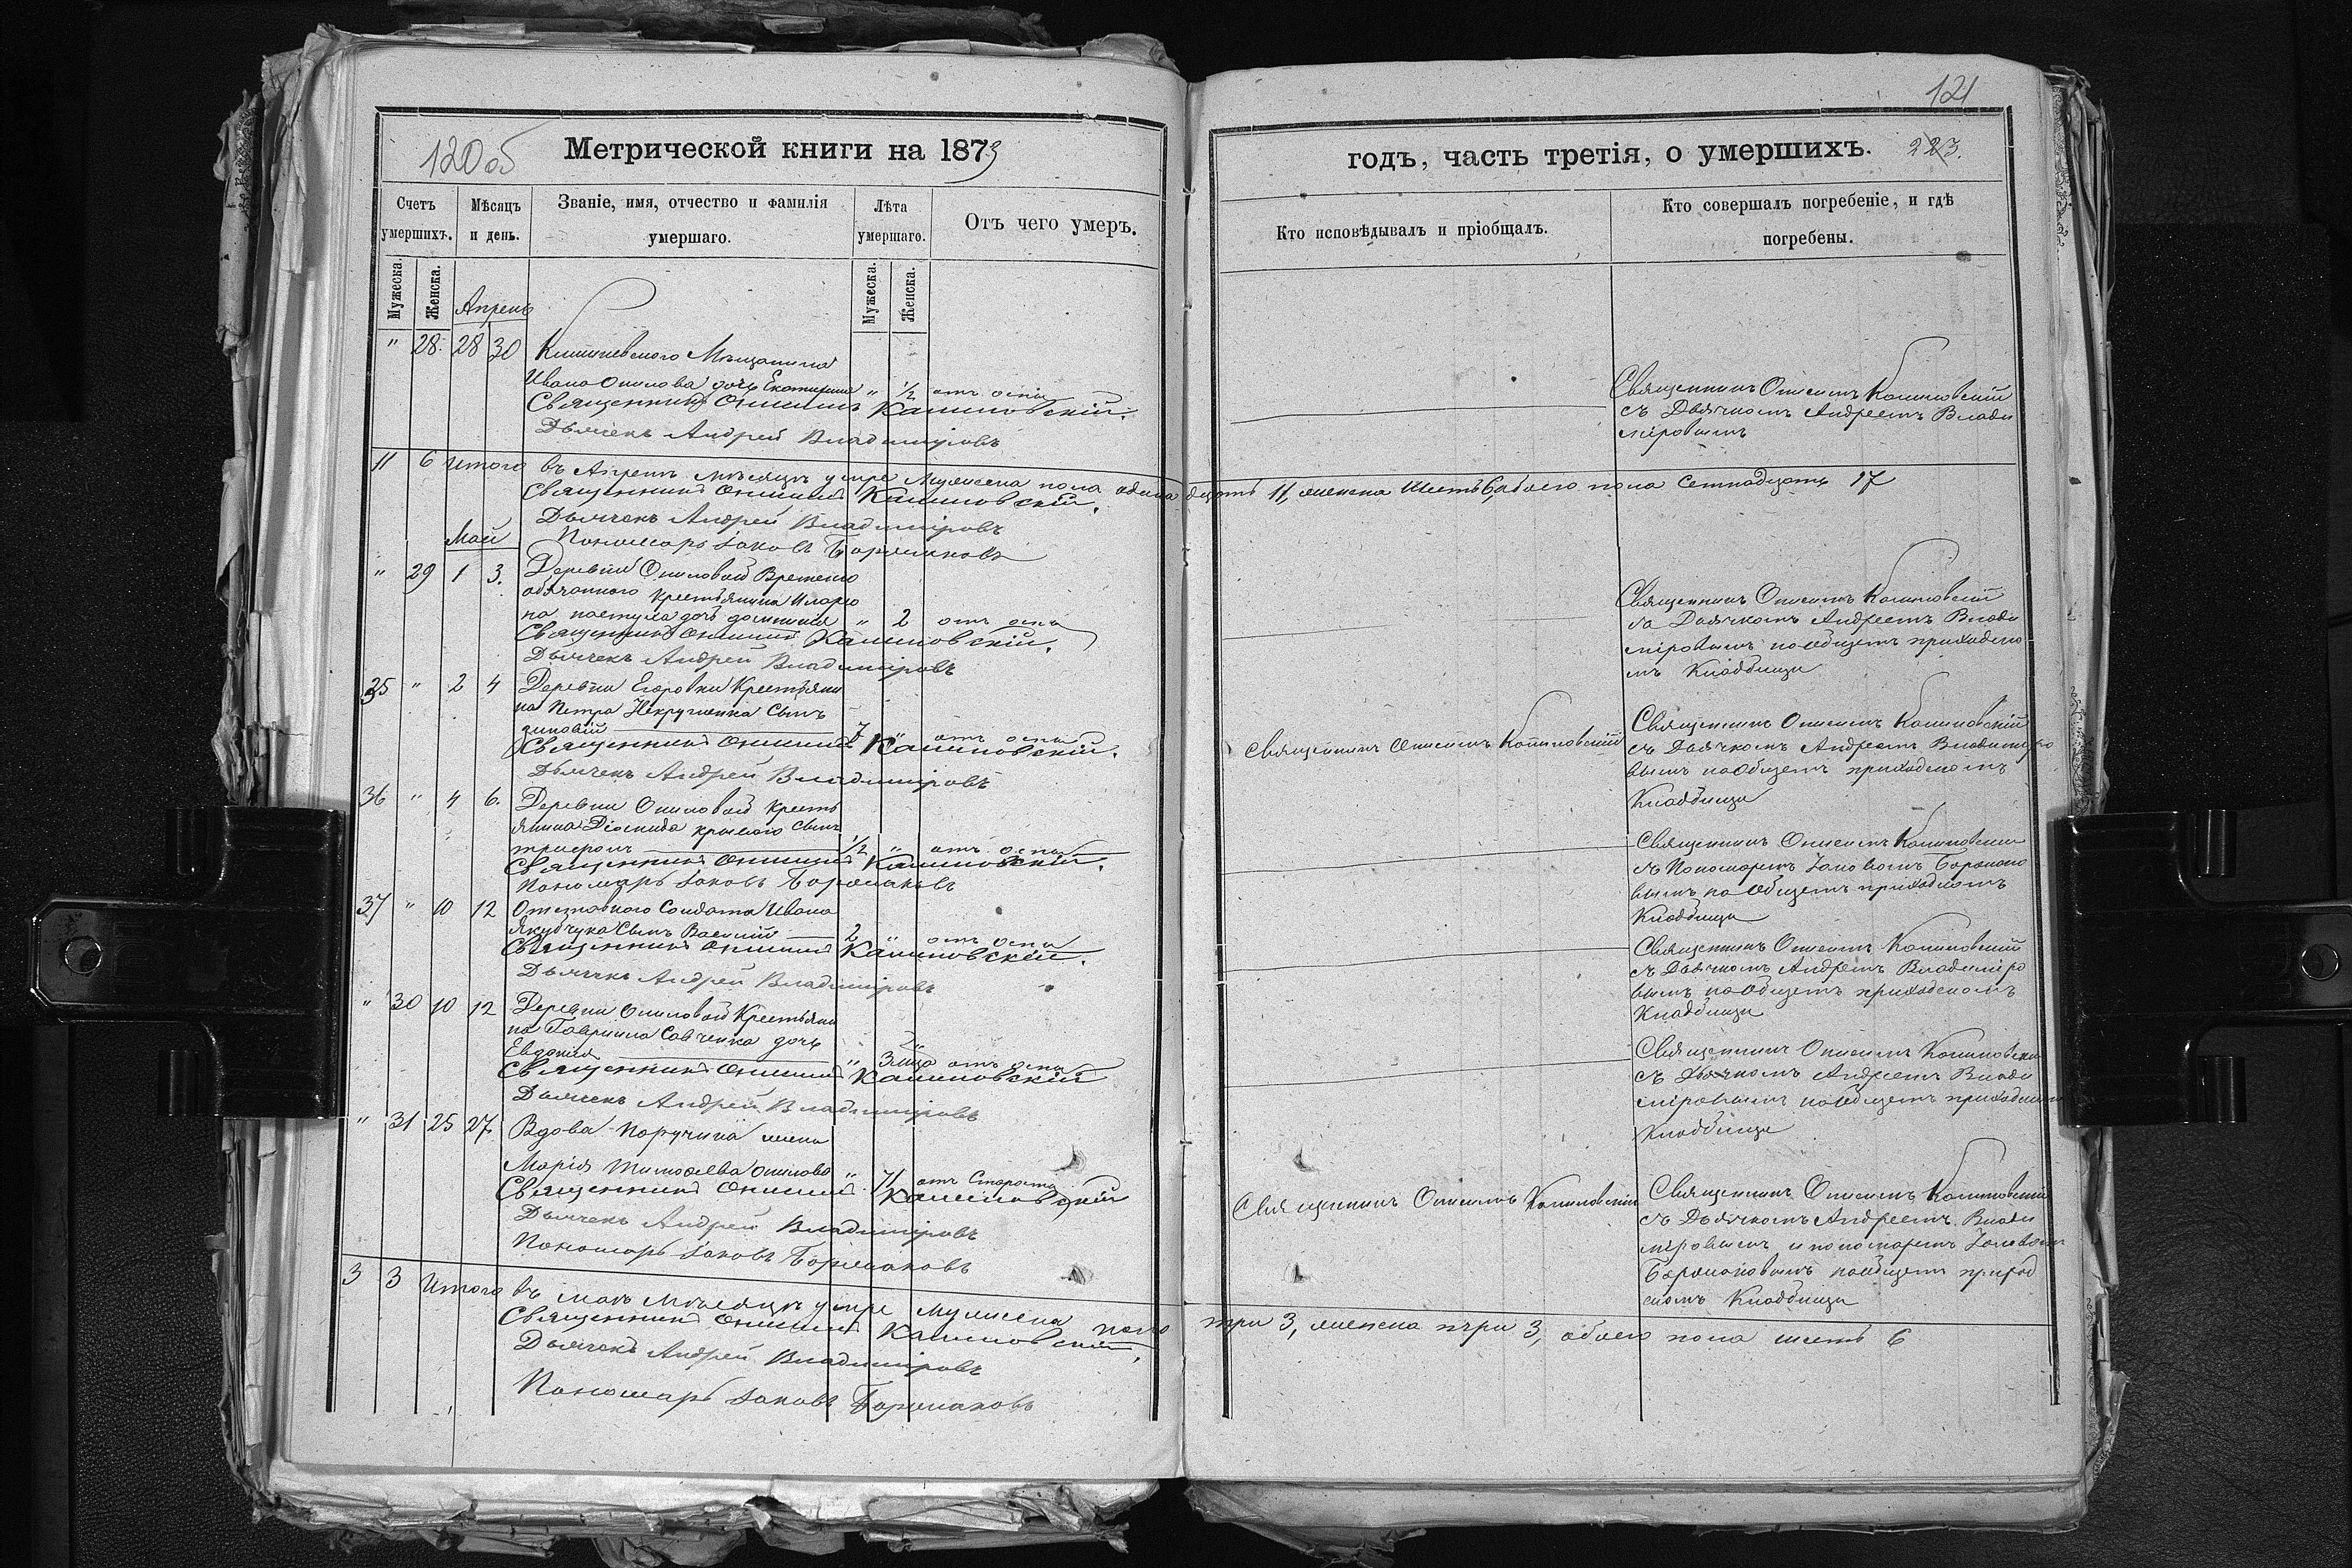 120 об
Метрической книги на 1873
Счетъ умершихъ.
Мѣсяцъ и день.
Званіе, имя, отчество и фамилія умершаго.
Лѣта умершаго.
Отъ чего умеръ.
Мужеска.
Женска.
Мужеска.
Женска.
Апрель
" 28. 28 30 Мѣщанина
Ивана Опилова дочь Екатерина " 1/2 отъ оспы
Священникъ Онисимъ Калиновскій.
Дьячекъ Андрей Владиміровъ
11 6 Итого въ Апреле месяце умре Мужеска пола одинадцать 11, женска шесть 6, обоего пола семнадцать 17
Священникъ Онисимъ Калиновскій.
Дьячекъ Андрей Владиміровъ
Пономарь Іаковъ
Май
" 29 1 3. Деревни Опиловой Временно
обязанного крестьянина Иларіо
на дочь " 2 отъ оспы
Священникъ Онисимъ Калиновскій.
Дьячекъ Андрей Владиміровъ
35 " 2 4 Деревни Егоровки Крестьяни
на Петра Сынъ
Зиновій 7 " отъ оспы
Священникъ Онисимъ Калиновскій.
Дьячекъ Андрей Владиміровъ
36 " 4 6. Деревни Опиловой Кресть
янина Діомида Сынъ
1/2 " отъ оспы
Священникъ Онисимъ Калиновскій.
Пономарь Іаковъ
37 " 10 12 Отставного Солдата Ивана
Якубчука Сынъ Василій 2 " отъ оспы
Священникъ Онисимъ Калиновскій.
Дьячекъ Андрей Владиміровъ
" 30 10 12 Деревни Опиловой Крестьяни
на Гавриила Савченка дочь
Евдокия " 3 отъ оспы
Священникъ Онисимъ Калиновскій
Дьячекъ Андрей Владиміровъ
" 31 25 27. Вдова Поручика жена
Марія Тимофеева Опилова " 71 отъ Старости
Священникъ Онисимъ Калиновскій
Дьячекъ Андрей Владиміровъ
Пономарь Іаковъ
3 3 Итого въ мае месяце умре мужеска пола три 3, женска три 3, обоего пола шесть 6
Священникъ Онисимъ Калиновскій.
Дьячекъ Андрей Владиміровъ
Пономарь Іаковъ
121
годъ, часть третія, о умершихъ.
223.
Кто исповѣдывалъ и пріобщалъ.
Кто совершалъ погребеніе, и гдѣ погребены.
Священникъ Онисимъ Калиновскій
съ Дьячкомъ Андреемъ Влади
міровымъ
Священникъ Онисимъ Калиновскій
са Дьячкомъ Андреемъ Влади
міровымъ на общемъ приходско
мъ Кладбищи
Священникъ Онисимъ Калиновскій
Священникъ Онисимъ Калиновскій
съ Дьячкомъ Андреемъ Владиміро
вымъ на общемъ приходскомъ
Кладбищи
Священникъ Онисимъ Калиновскій
съ Пономаремъ Іаковомъ
вымъ на общемъ приходскомъ
Кладбищи
Священникъ Онисимъ Калиновскій
съ Дьячкомъ Андреемъ Владиміро
вымъ на общемъ приходскомъ
Кладбищи
Священникъ Онисимъ Калиновскій
съ Дьячкомъ Андреемъ Влади
міровымъ на общемъ приходскомъ
Кладбище
Священникъ Онисимъ Калиновскій
Священникъ Онисимъ Калиновскій
съ Дьячкомъ Андреемъ Влади
міровымъ и пономаремъ Іаковомъ
на общемъ приход
скомъ Кладбищи